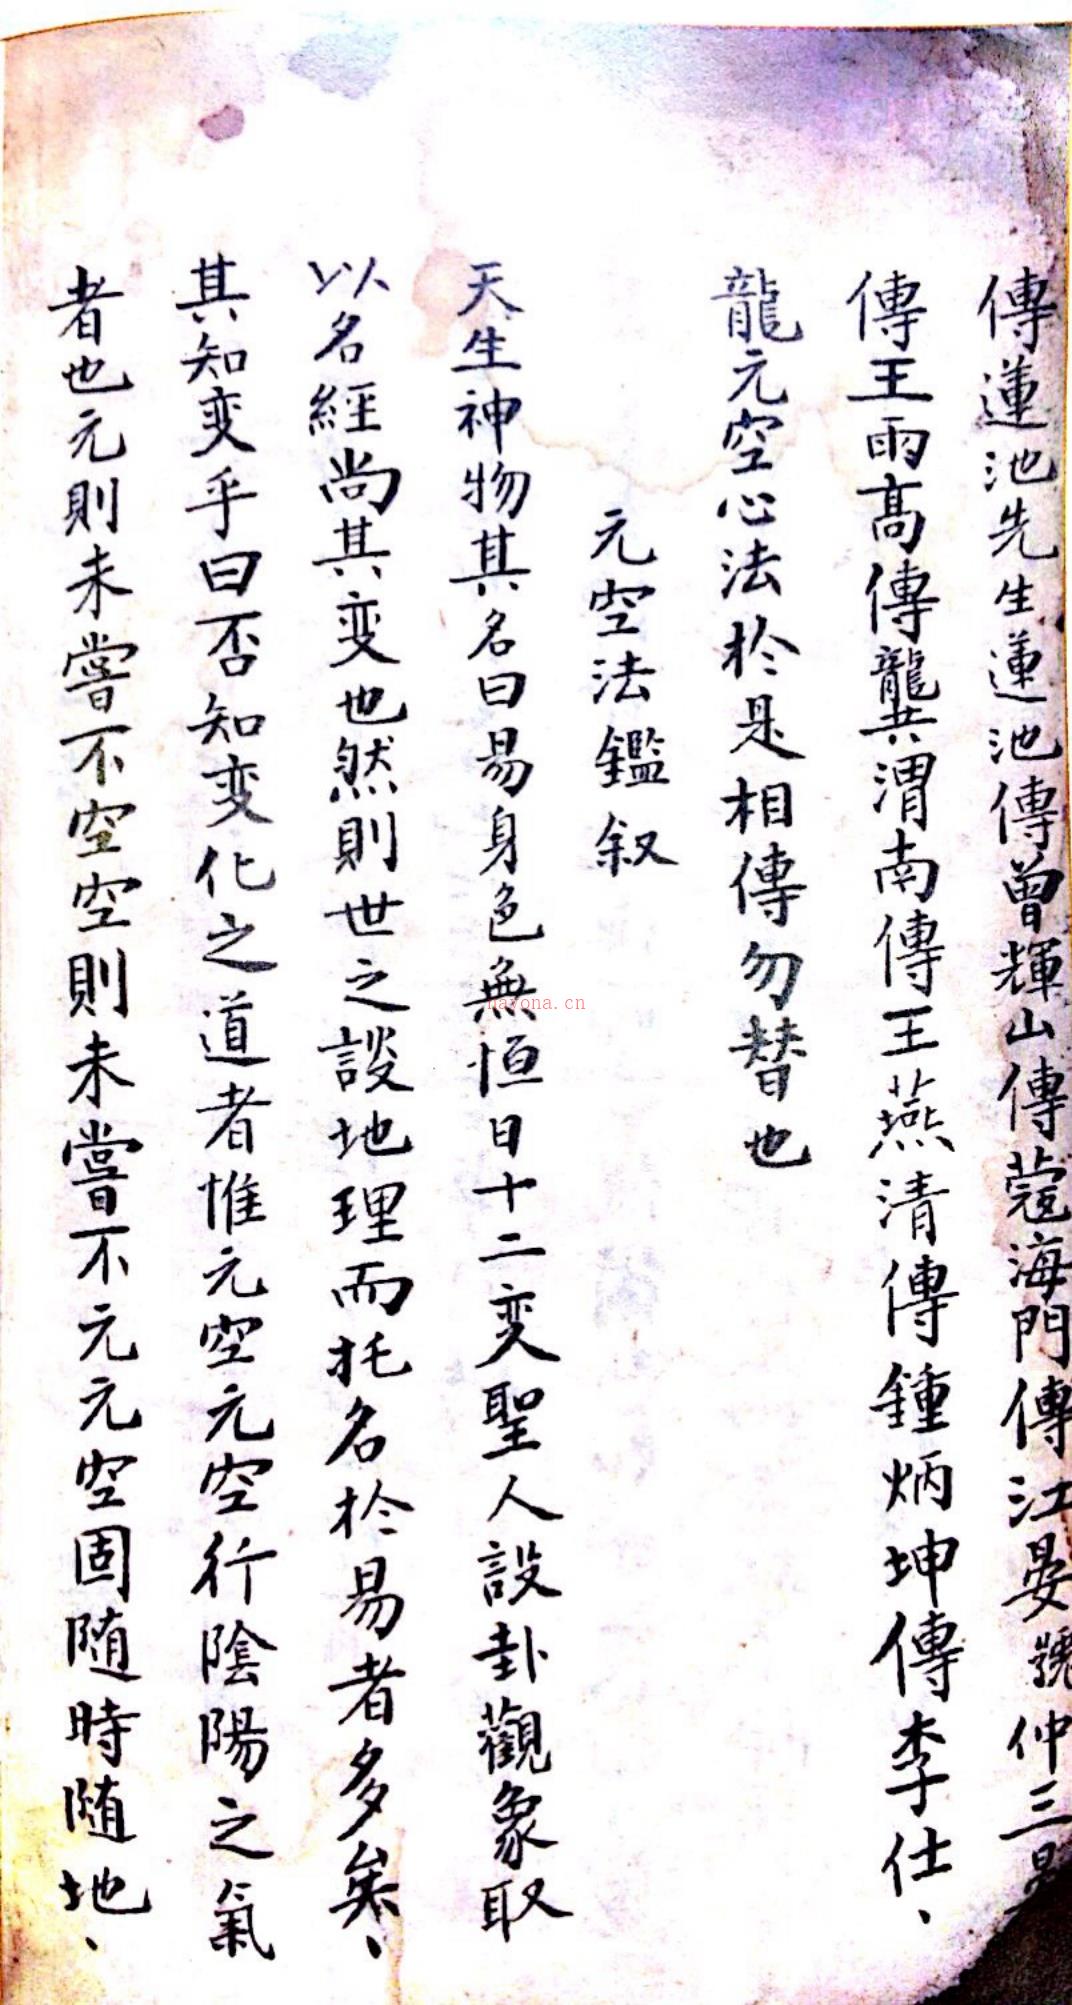 傳蓮池先生蓮池傳曾輝山傳蔻海門傳江晏號仲三晏
傳王雨高傳龔渭南傳王燕清傳鍾炳坤傳李仕、
龍元空心法於是相傳勿替也
元空法鑑叙
天生神物其名曰易身色無恒日十二变聖人設卦觀象取
以名經尚其变也然則世之談地理而托名於易者多矣、
其知变乎曰否知变化之道者惟元空元空行陰陽之氣
者也元則未嘗不空空則未嘗不元元空固随時随地、
nayona.cn